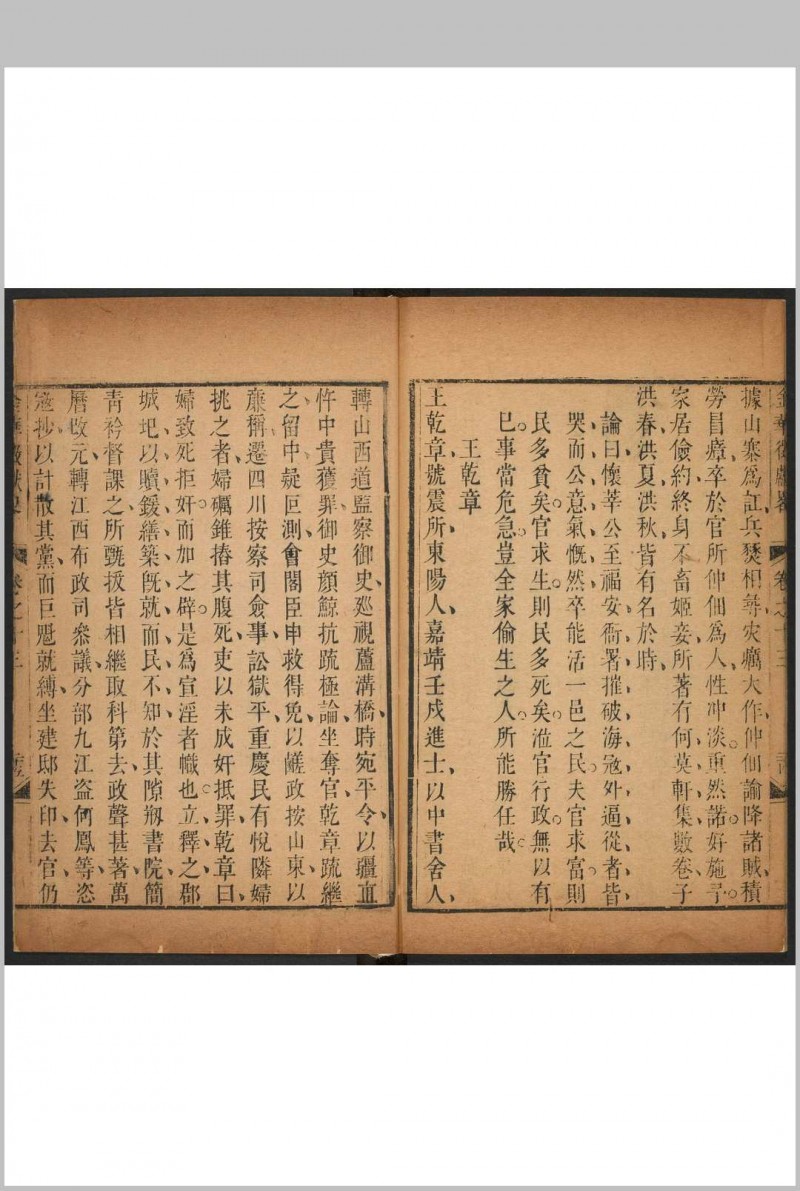 據山寨爲訌兵燹相尋灾癘大作仲佃諭降諸賊積
勞冒瘴卒於官所仲佃爲人性冲淡重然諾好施予
家居儉約終身不畜姬妾所著有何莫軒集數卷子
洪春洪夏洪秋皆有名於時
論曰懷莘公至福安衙署摧破海寇外逼從者皆
哭而公意氣慨然卒能活一邑之民夫官求富則
民多貧矣官求生則民多死矣涖官行政無以有
巳事當危急豈全家偷生之人所能勝任哉
王乾章
王乾章號震所東陽人嘉靖壬戌進士以中書舍人
轉山西道監察御史廵視蘆溝橋時宛平令以疆直
忤中貴獲罪御史顔鯨抗疏極論坐奪官乾章疏繼
之留中疑叵測會閣臣申救得免以鹺政按山東以
廉稱遷四川按察司僉事訟獄平重慶民有悅隣婦
挑之者婦礪錐摏其腹死吏以未成奸抵罪乾章曰
婦致死拒奸而加之辟是爲宣淫者幟也立釋之郡
城圯以贖鍰繕築旣就而民不知於其隙剏書院簡
靑衿督課之所甄拔皆相繼取科第去政聲甚著萬
曆改元轉江西布政司叅議分部九江盗何鳳等恣
寇抄以計散其黨而巨魁就縛坐建邸失印去官仍
卷之十三